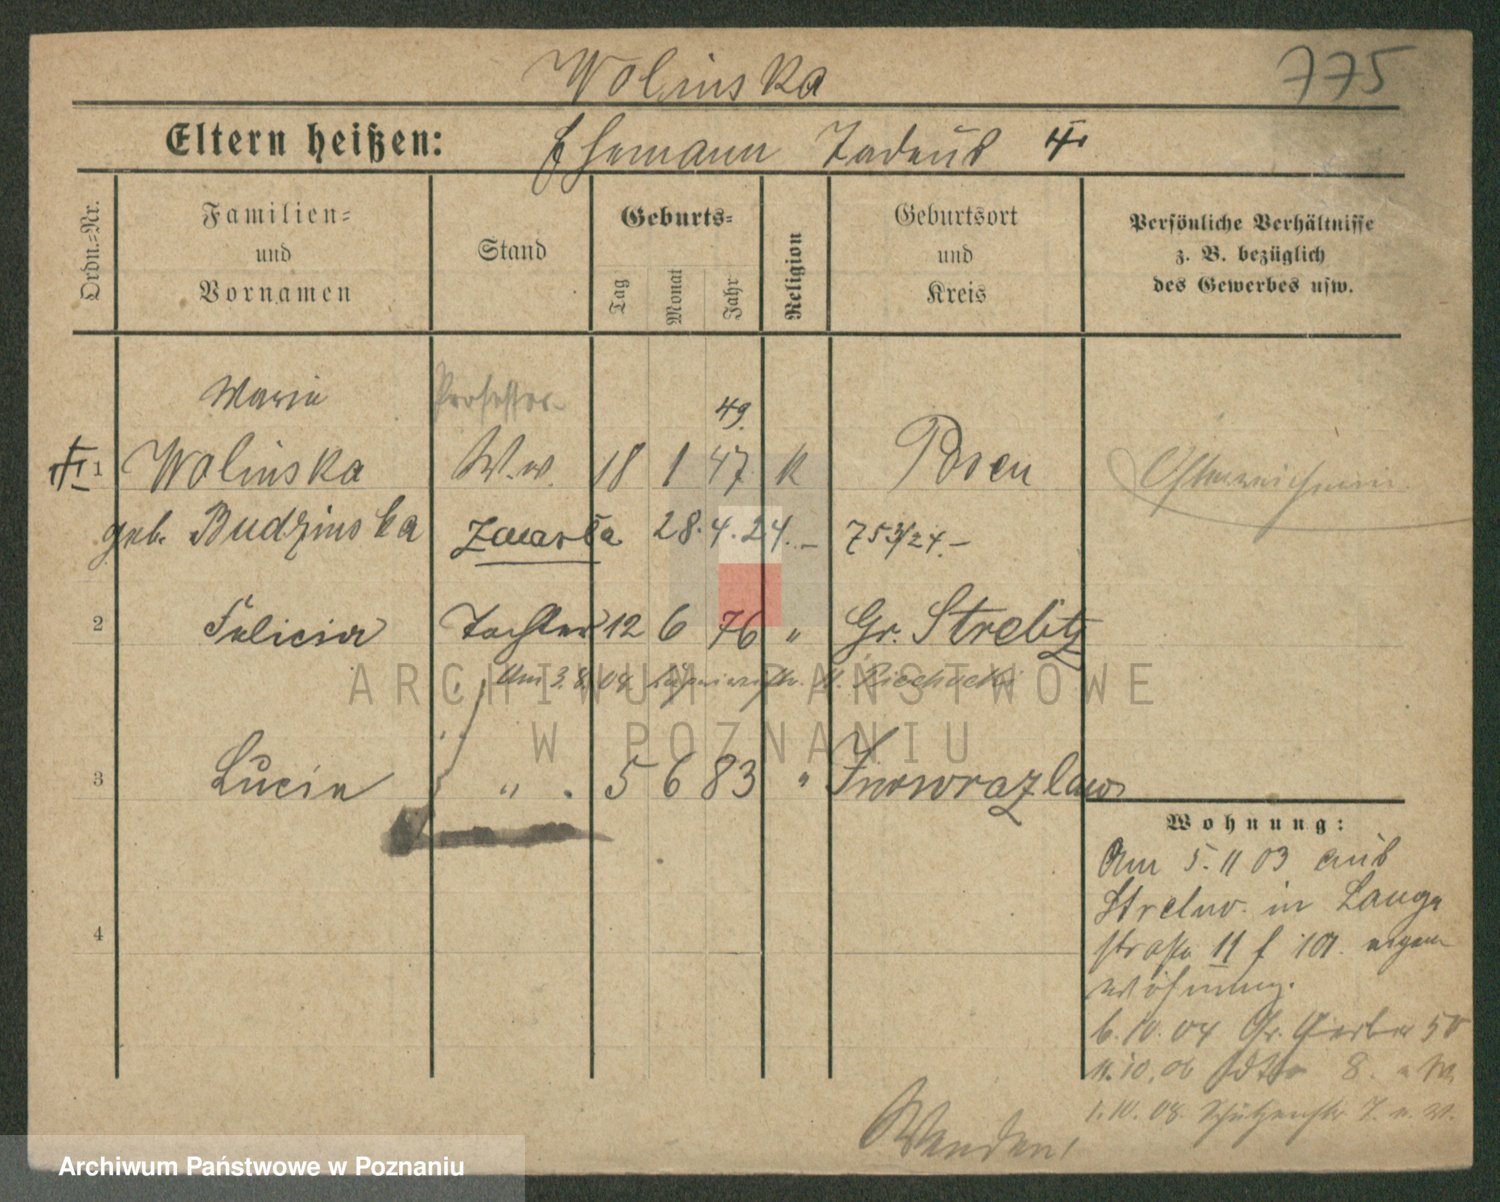 Wolinska
775
Eltern heißen: Ehemann Tadeus †
Ordn.-Nr.
Familien-
und
Vornamen
Stand
Geburts-
Tag Monat Jahr
Religion
Geburtsort
und
Kreis
Persönliche Verhältnisse
z. B. bezüglich
des Gewerbes usw.
Maria Professor 49.
1 Wolinska Ww. 18 1 47. K Posen
geb. Budzinska zmarła 28.4.24.- 753/24.-
2 Felicia Tochter 12 6 76 " Gr. Strelitz
Am 3.8.08
ARCHIWUM PAŃSTWOWE
W POZNANIU
3 Lucia " 5 6 83 " Inowrazlaw
4
Wohnung:
Am 5.11 03 aus
Strelno in Lange
straße 11 eigene
Wohnung.
6.10.04 Gr. Gerber 50
11.10.06 8. W.
1.10.08 Schützenstr 7. e. W.
Wenden!
Archiwum Państwowe w Poznaniu